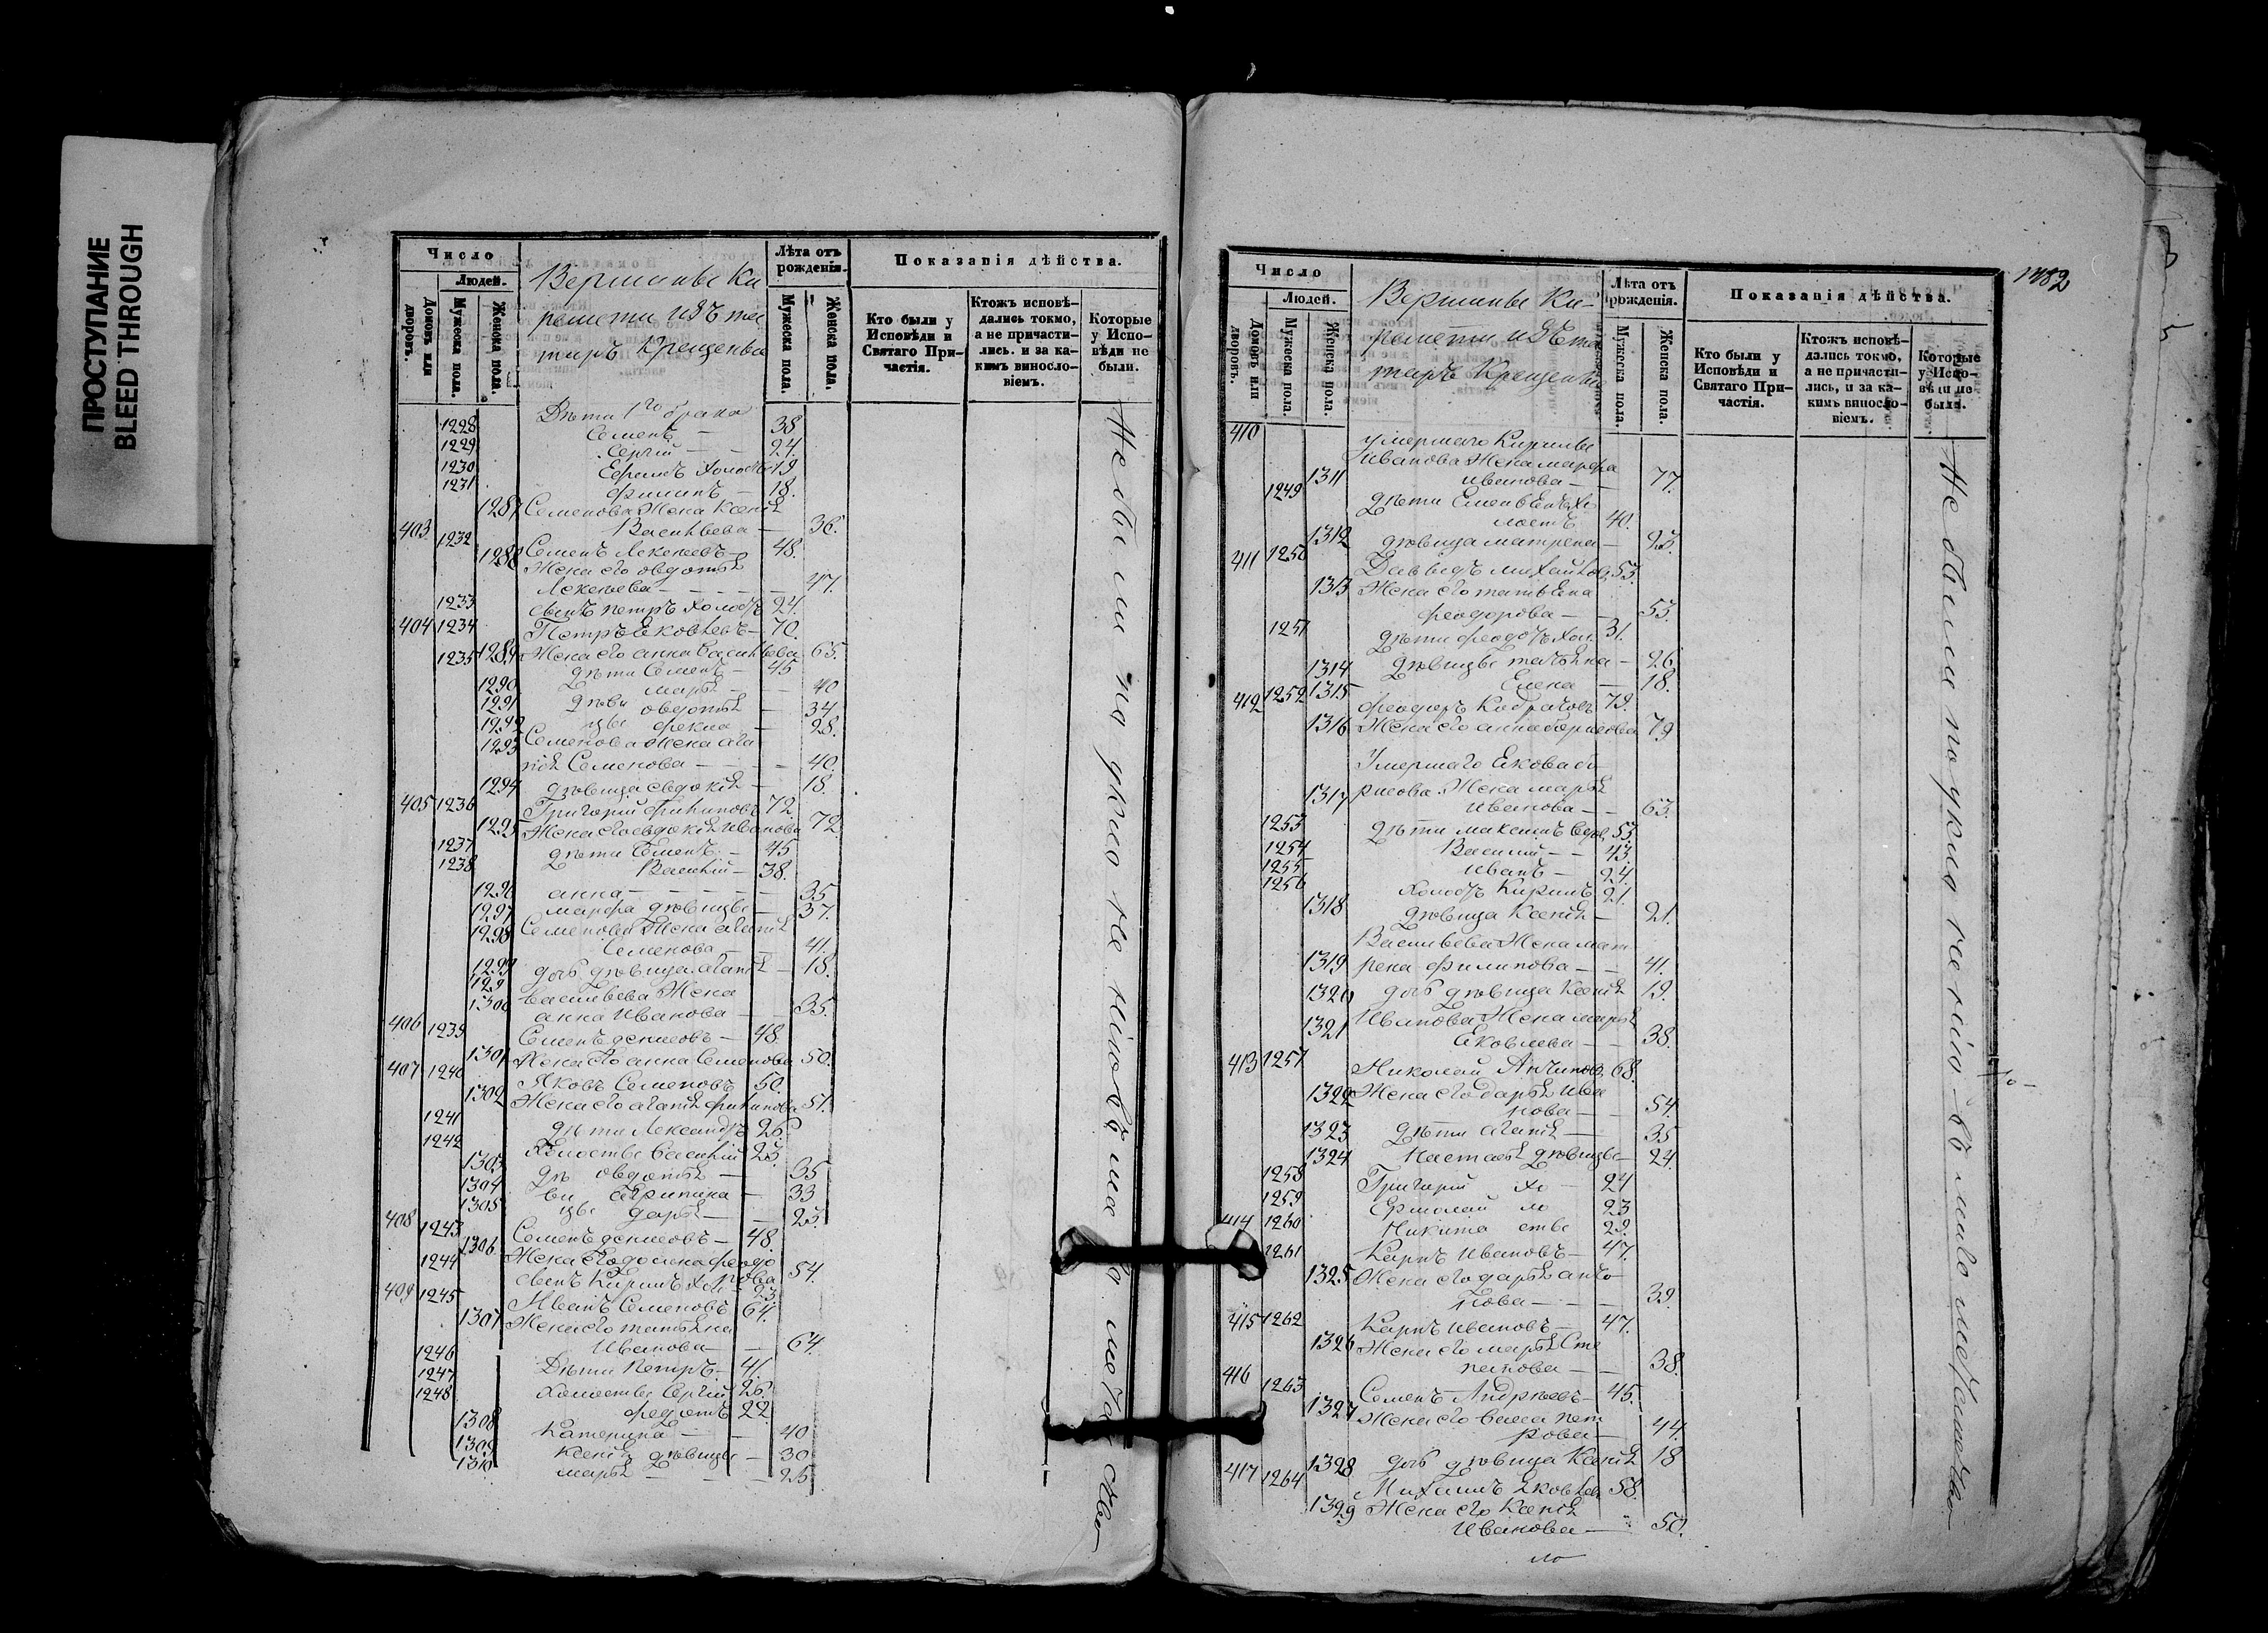 ПРОСТУПАНИЕ
BLEED THROUGH
Число
Людей.
Домовъ или дворовъ.
Мужеска пола.
Женска пола.
Вершины Ки
ремети изъ та
таръ Крещены
Лѣта отъ рожденія.
Мужеска пола.
Женска пола.
Показанія дѣйства.
Кто были у Исповѣди и Святаго Причастія.
Ктожъ исповѣдались токмо, а не причастились. и за какимъ винословіемъ.
Которые у Исповѣди не были.
Дѣти 1го брака
1228 Семенъ — 38
1229 Сергій — — 24.
1230 Ефремъ холостъ 19
1231 Филипъ — 18.
1287 Семенова Жена Ксенія
Васильева — 36.
403 1232 Семенъ Алексеевъ — 48.
1288 Жена его овдотья
Алексеева — — — — 47.
1233 сынъ петръ холостъ 24.
404 1234 Петръ Яковлевъ — 70.
1289 Жена его анна васильева 65.
1235 дѣти Семенъ — 45
1290 марья — — 40
1291 дѣви овдотья — 34
1292 цы фекла — 28.
1293 Семенова Жена ага
пія Семенова — — — 40.
1294 дѣвица евдокія — 18.
405 1236 Григорій Филиповъ 72.
1295 Жена его евдокія иванова 72
1237 дѣти Семенъ — 45
1238 Василій — 38.
1296 анна — — — — 35
1297 марфа дѣвицы — 37.
1298 Семенова Жена агапія
Семенова — — 41.
1299 дочь дѣвица агапія — 18.
129
1300 васильева Жена
анна Иванова — — 35.
406 1239 Семенъ денисовъ — 48.
1301 Жена его анна Семенова 50.
407 1240 Яковъ Семеновъ 50.
1302 Жена его агапія филипова 51.
1241 дѣти Александръ 26.
1242 холосты василій 23.
1303 дѣ овдотья — 35
1304 ви Агрипина — 33
1305 цы дарья — — 23.
408 1243 Семенъ денисовъ — 48.
1306 Жена его домна федо
рова 54.
1244 сынъ Кирилъ хол 23.
409 1245 Иванъ Семеновъ 64.
1307 Жена его татьяна
Иванова — — 64.
1246 Дѣти петръ — 41.
1247 холосты Сергій 26.
1248 федотъ 22.
1308 Катерина — — 40
1309 Ксенія дѣвицы — 30
1310 марья — — — 25
Не были по
1482
Число
Людей.
Домовъ или дворовъ.
Мужеска пола.
Женска пола.
Вершины Ки-
ремети изъ та
таръ Крещены
Лѣта отъ рожденія.
Мужеска пола.
Женска пола.
Показанія дѣйства.
Кто были у Исповѣди и Святаго Причастія.
Ктожъ исповѣдались токмо, а не причастились, и за какимъ винословіемъ.
Которые у Исповѣди не были.
410 умершаго Кирилы
1311 Иванова Жена марфа
иванова — — 77.
1249 дѣти Емельянъ хо
лостъ 40.
1312 дѣвица матрена — 23.
411 1250 Давыдъ михайлов. 53.
1313 Жена его татьяна
феодорова — — 53.
1251 дѣти феодотъ хол. 31.
1314 дѣвицы татьяна — 26.
1315 Елена — 18.
412 1252 феодоръ 73.
1316 Жена его анна борисова 79
Умершаго Якова бо
1317 рисова Жена марья
иванова — — 63.
1253 дѣти максимъ вдов. 53.
1254 Василій — — 43.
1255 иванъ — 24
1256 холостъ Кирилъ 21.
1318 дѣвица Ксенія — 21.
Васильева Жена мат
1319 рена филипова — — 41.
1320 дочь дѣвица Ксенія 19.
1321 Иванова Жена марья
Яковлева — — 38.
413 1257 Николай Антиповъ 68.
1322 Жена его дарья ива
нова — — 54.
1323 дѣти агапія — 35
1324 Настасья дѣвицы — 24.
1258 Григорій хо — 24
1259 Ермолай ло 23
1260 Никита сты 22.
414 1261 Карпъ ивановъ — 47.
1325 Жена его дарья анто
нова — — — 39.
415 1262 Карпъ ивановъ — 47.
1326 Жена его марья Сте
панова — — 38.
416 1263 Семенъ Андреевъ — 45.
1327 Жена его васса пет
рова — 44.
1328 дочь дѣвица Ксенія 18
417 1264 Михаилъ Яковлев 58.
1329 Жена его Ксенія
Иванова — 50.
Не были по